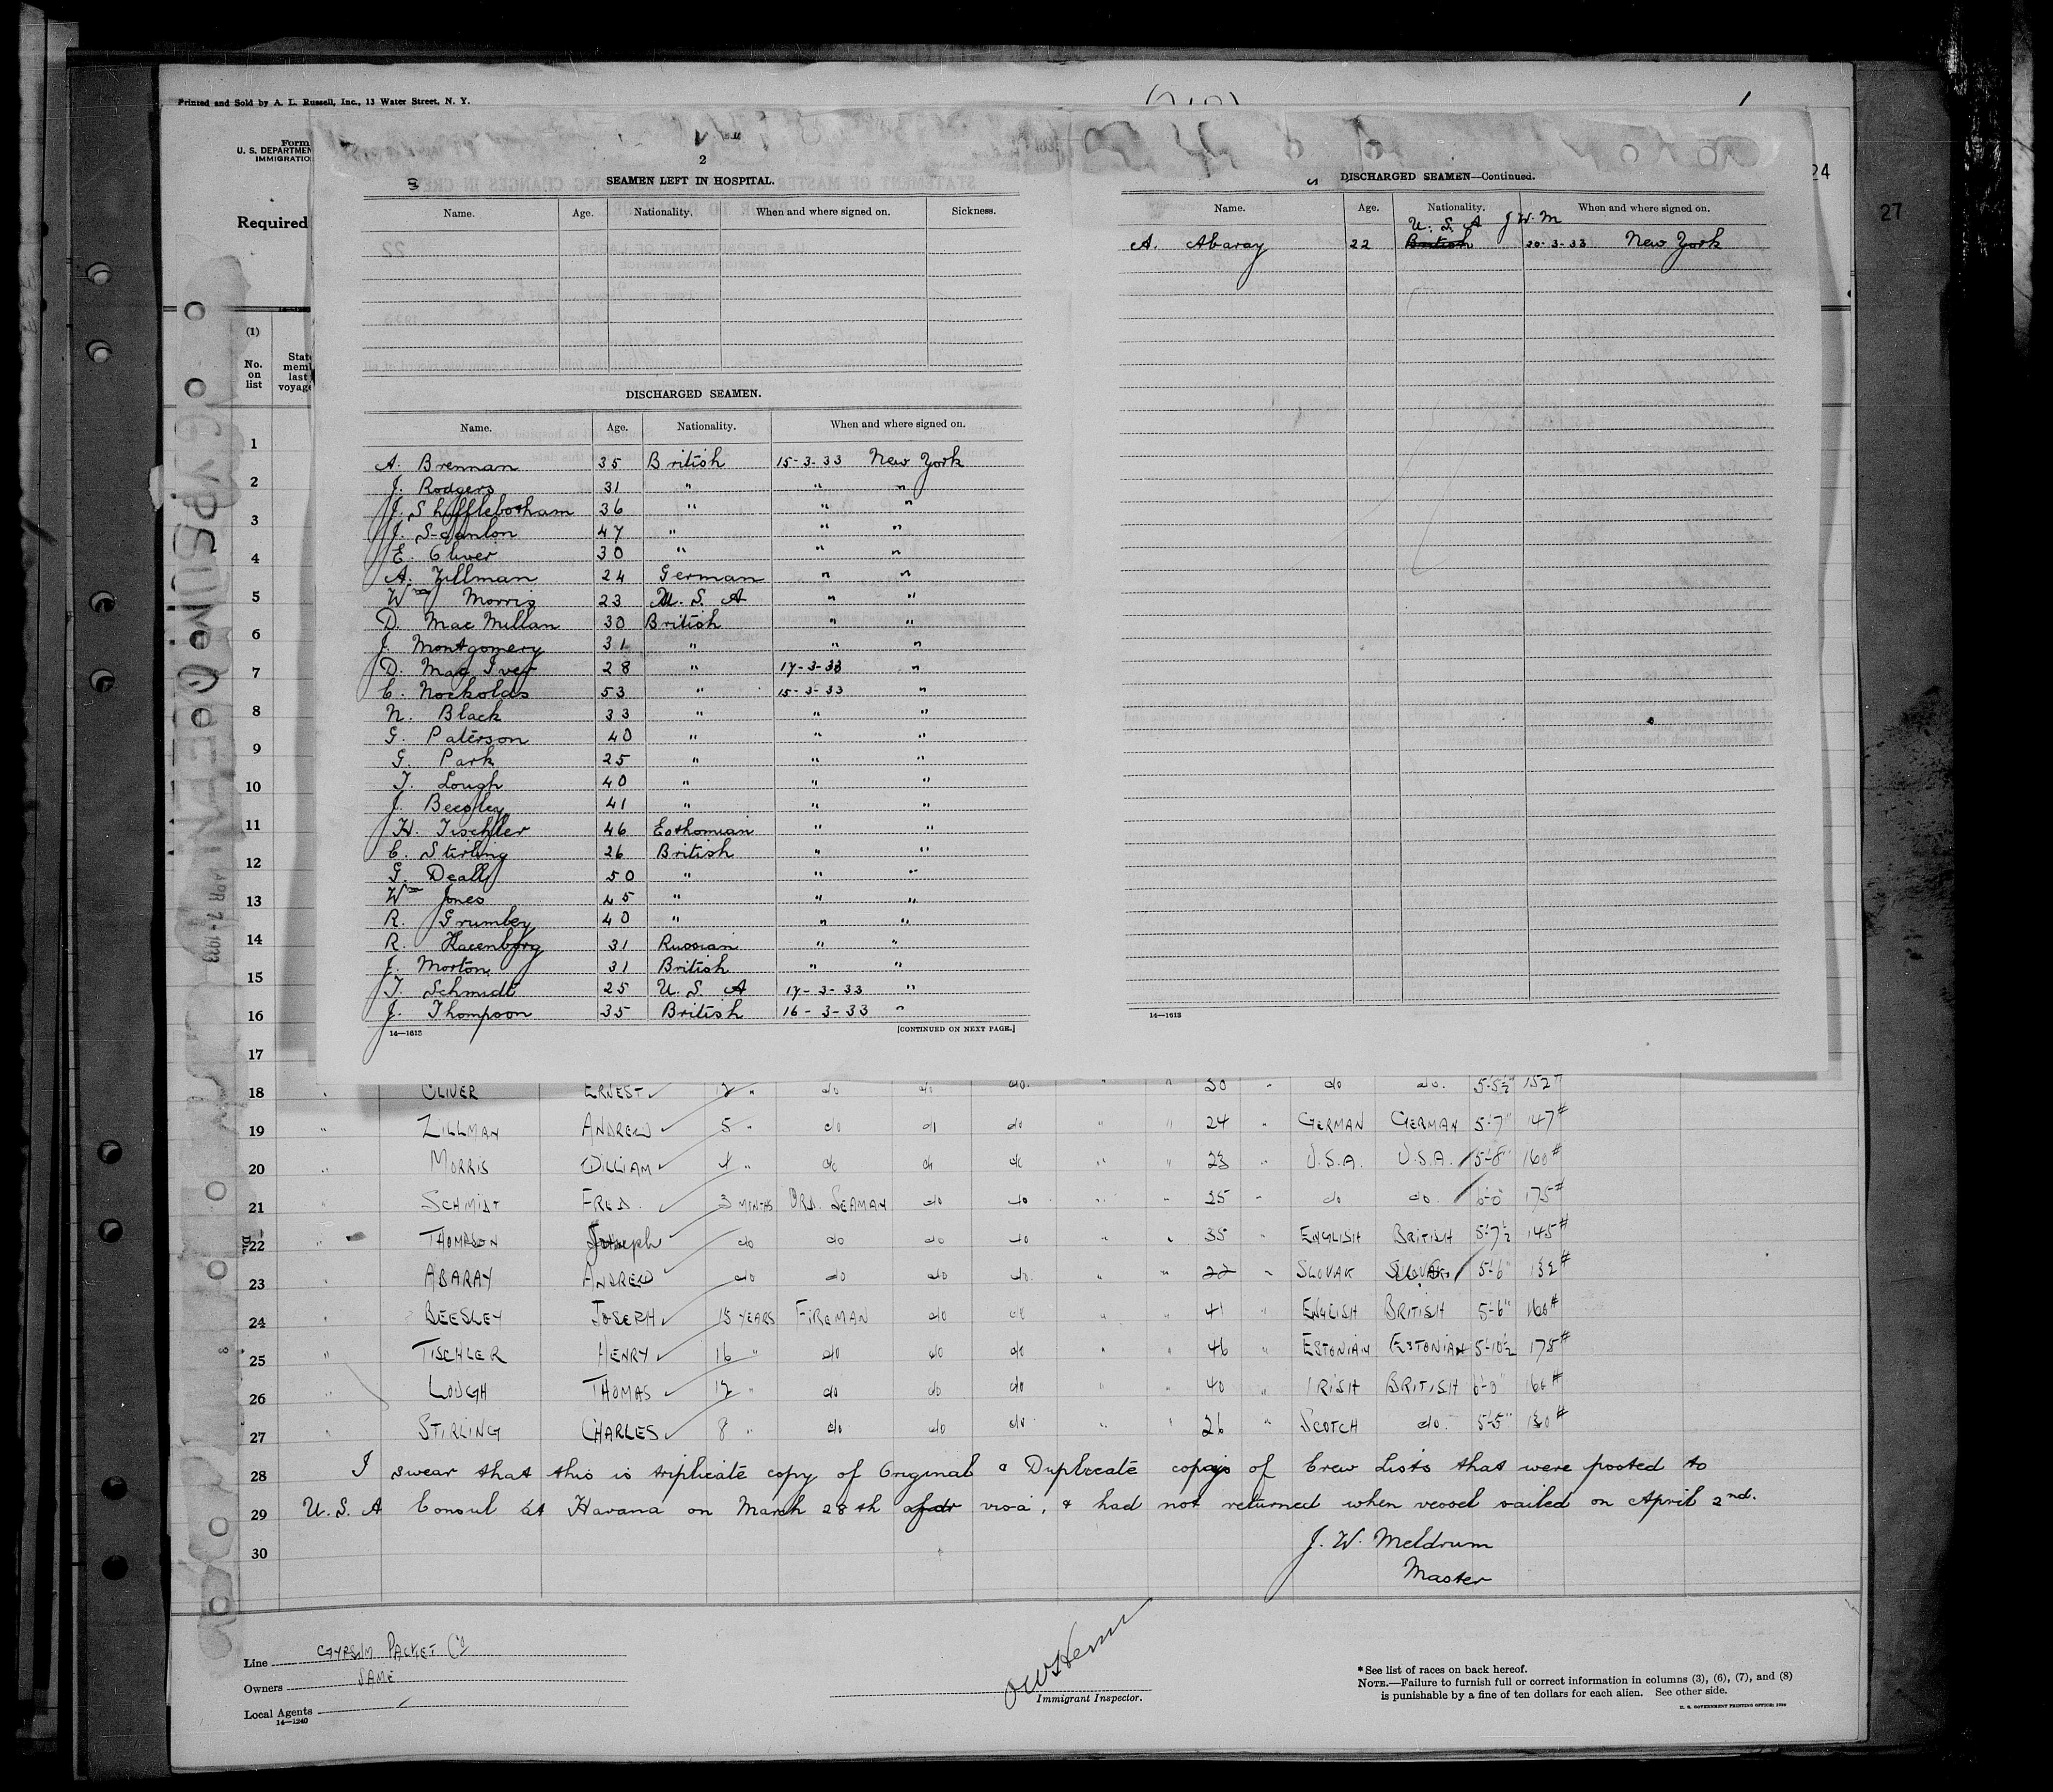 Printed and Sold by A. L. Russell, Inc., 13 Water Street, N. Y.
1
Form
U. S. DEPARTMEN
IMMIGRATIO
Required
24
27
2
SEAMEN LEFT IN HOSPITAL.
Name. Age. Nationality. When and where signed on. Sickness.
DISCHARGED SEAMEN.
Name. Age. Nationality. When and where signed on.
A. Brennan 35 British 15-3-33 New York
J. Rodgers 31 " " "
J. Shufflebotham 36 " " "
J. Scanlon 47 " " "
E. Oliver 30 " " "
A. Zillman 24 German " "
Wm Morris 23 U. S. A " "
D. Mac Millan 30 British " "
J. Montgomery 31 " " "
D. Mac Iver 28 " 17-3-33 "
C. Nockolds 53 " 15-3-33 "
N. Black 33 " " "
G. Paterson 40 " " "
G. Park 25 " " "
T. Lough 40 " " "
J. Beesley 41 " " "
H. Tischler 46 Esthonian " "
C. Stirling 26 British " "
G. Deall 50 " " "
Wm Jones 45 " " "
R. Grumley 40 " " "
R. 31 Russian " "
J. Morton 31 British " "
F. Schmidt 25 U. S A 17-3-33 "
J. Thompson 35 British 16-3-33 "
14—1613 [CONTINUED ON NEXT PAGE.]
DISCHARGED SEAMEN—Continued.
Name. Age. Nationality. When and where signed on.
U. S. A J. W. M
A. Abaray 22 British 20-3-33 New York
14—1613
(1)
No. on list
State
mem
last
voyage
1
2
3
4
5
6
7
8
9
10
11
12
13
14
15
16
17
18 " OLIVER ERNEST 12 " do do do " " 30 " do do. 5-5½" 152#
19 " ZILLMAN ANDREW 5 " do do do " " 24 " GERMAN GERMAN 5-7" 147#
20 " MORRIS WILLIAM 4 " do do do " " 23 " U.S.A. U.S.A. 5-8" 160#
21 " SCHMIDT FRED. 3 MONTHS ORD. SEAMAN do do " " 25 " do do. 6-0" 175#
22 " THOMPSON Joseph do do do do " " 35 " ENGLISH BRITISH 5-7½ 145#
23 " ABARAY ANDREW do do do do. " " 22 " SLOVAK 5-6" 132#
24 BEESLEY JOSEPH 15 YEARS FIREMAN do do " " 41 " ENGLISH BRITISH 5-6" 160#
25 " TISCHLER HENRY 16 " do do do " " 46 " ESTONIAN ESTONIAN 5-10½ 175#
26 " LOUGH THOMAS 12 " do do do " " 40 " IRISH BRITISH 6-0" 160#
27 " STIRLING CHARLES 8 " do do do " " 26 " SCOTCH do. 5-5" 130#
28 I swear that this is triplicate copy of Original & Duplicate copys of Crew Lists that were posted to
29 U. S. A Consul at Havana on March 28th visa, & had not returned when vessel sailed on April 2nd.
30
J. W. Meldrum
Master
Line GYPSUM PACKET Co
Owners SAME
Local Agents
14—1240
Immigrant Inspector.
* See list of races on back hereof.
NOTE.—Failure to furnish full or correct information in columns (3), (6), (7), and (8)
is punishable by a fine of ten dollars for each alien. See other side.